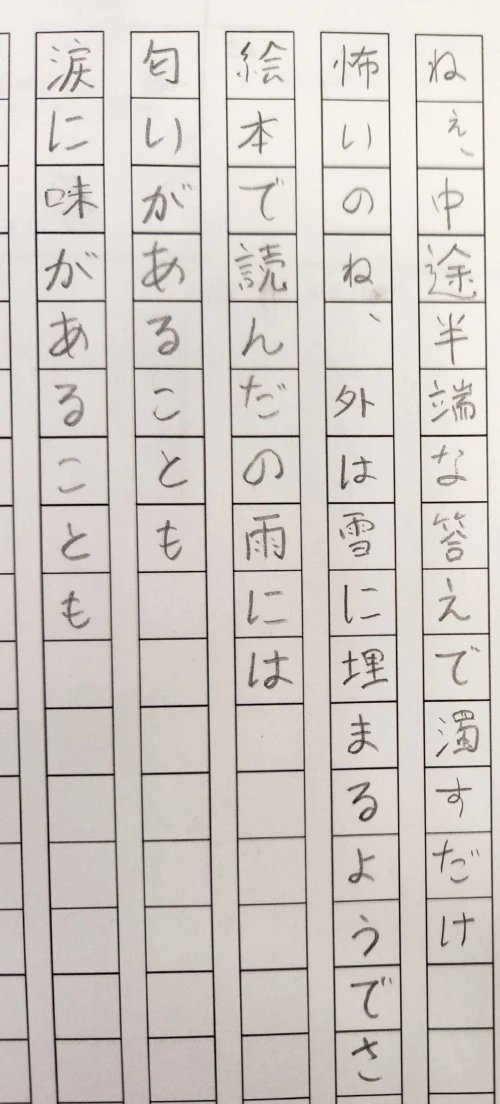 ねぇ、中途半端な答えで濁すだけ
怖いのね、外は雪に埋まるようでさ
絵本で読んだの雨には
匂いがあることも
涙に味があることも